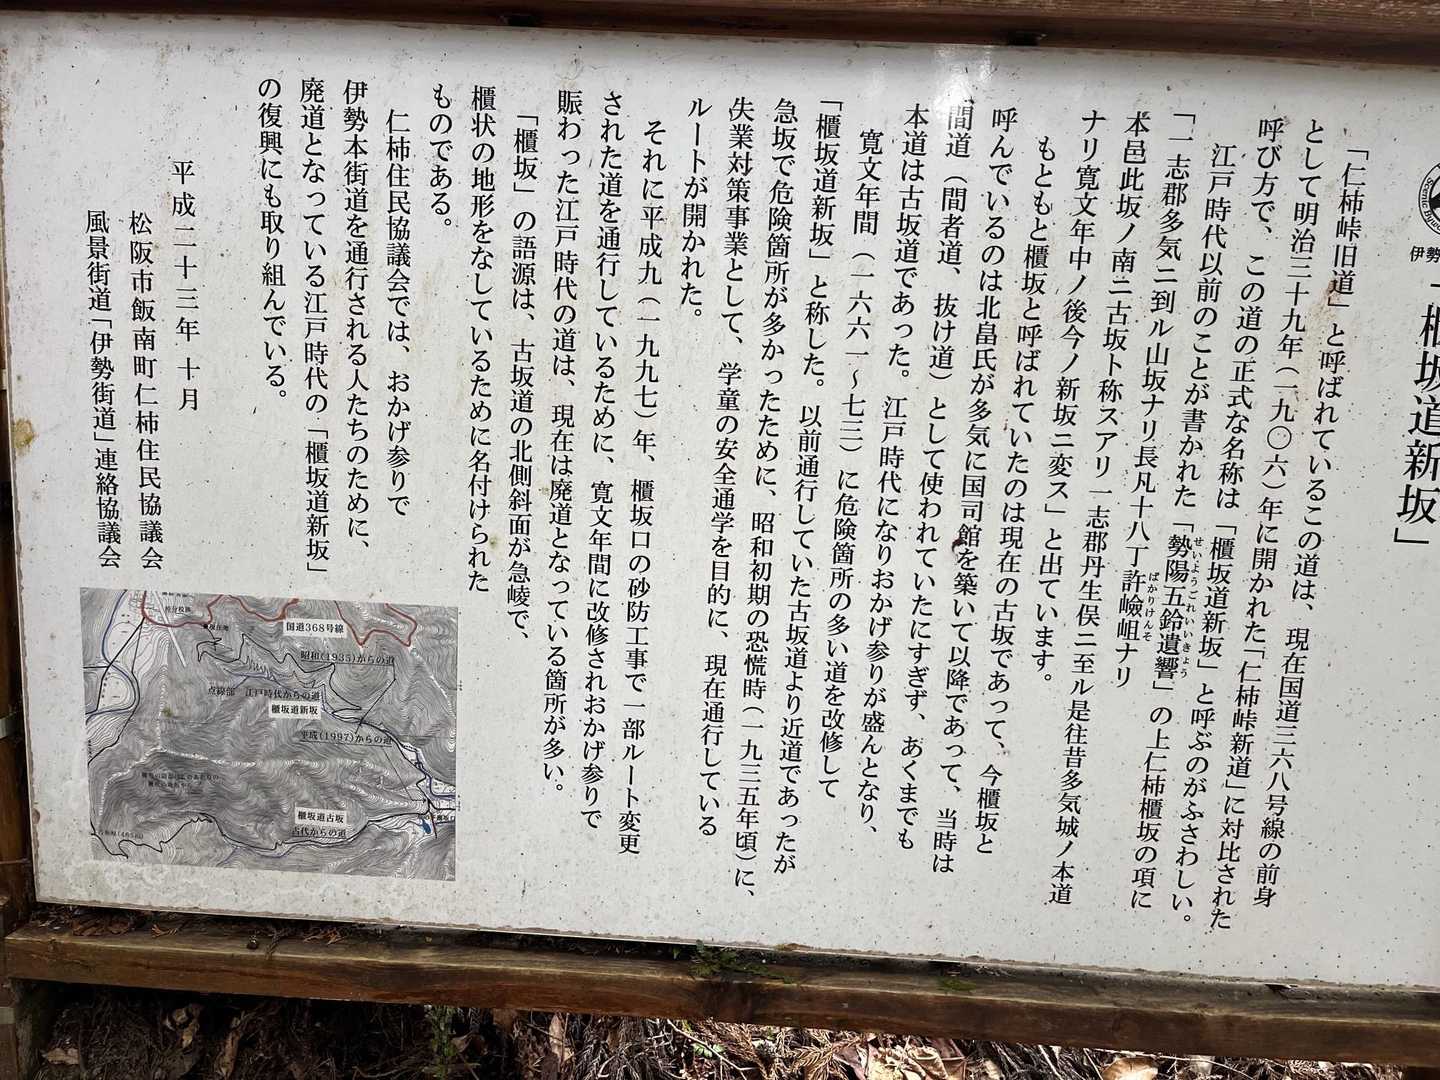 伊勢
「櫃坂道新坂」
「仁柿峠旧道」と呼ばれているこの道は、現在国道三六八号線の前身
として明治三十九年(一九〇六)年に開かれた「仁柿峠新道」に対比された
呼び方で、この道の正式な名称は「櫃坂道新坂」と呼ぶのがふさわしい。
江戸時代以前のことが書かれた「勢陽五鈴遺響」の上仁柿櫃坂の項に
せいようごれいいきょう
「一志郡多気ニ到ル山坂ナリ長凡十八丁許嶮岨ナリ
ばかりけんそ
本邑此坂ノ南ニ古坂ト称スアリ一志郡丹生俣ニ至ル是往昔多気城ノ本道
ナリ寛文年中ノ後今ノ新坂ニ変ス」と出ています。
もともと櫃坂と呼ばれていたのは現在の古坂であって、今櫃坂と
呼んでいるのは北畠氏が多気に国司館を築いて以降であって、当時は
間道(間者道、抜け道)として使われていたにすぎず、あくまでも
本道は古坂道であった。江戸時代になりおかげ参りが盛んとなり、
寛文年間(一六六一～七三)に危険箇所の多い道を改修して
「櫃坂道新坂」と称した。以前通行していた古坂道より近道であったが
急坂で危険箇所が多かったために、昭和初期の恐慌時(一九三五年頃)に、
失業対策事業として、学童の安全通学を目的に、現在通行している
ルートが開かれた。
それに平成九(一九九七)年、櫃坂口の砂防工事で一部ルート変更
された道を通行しているために、寛文年間に改修されおかげ参りで
賑わった江戸時代の道は、現在は廃道となっている箇所が多い。
「櫃坂」の語源は、古坂道の北側斜面が急峻で、
櫃状の地形をなしているために名付けられた
ものである。
仁柿住民協議会では、おかげ参りで
伊勢本街道を通行される人たちのために、
廃道となっている江戸時代の「櫃坂道新坂」
の復興にも取り組んでいる。
平成二十三年十月
松阪市飯南町仁柿住民協議会
風景街道「伊勢街道」連絡協議会
国道368号線
昭和(1935)からの道
点線部 江戸時代からの道
櫃坂道新坂
平成(1997)からの道
櫃坂道古坂
古代からの道